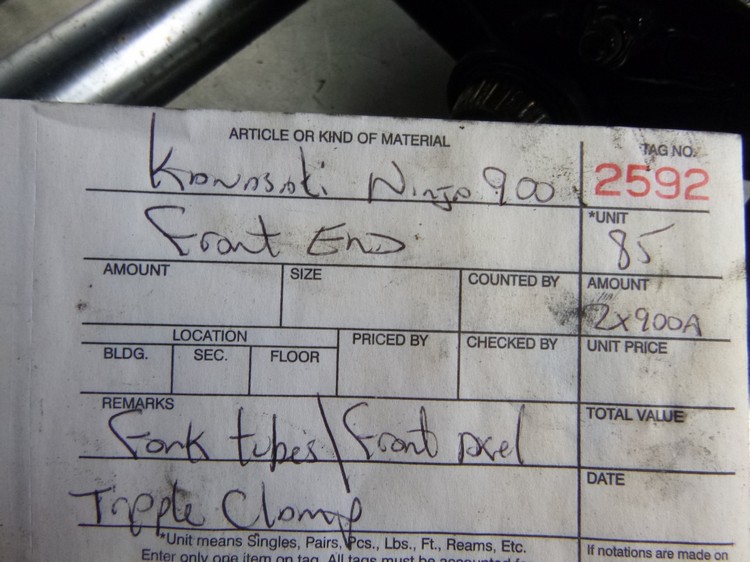 ARTICLE OR KIND OF MATERIAL
TAG NO.
Kawasaki Ninja 900
2592
Front End
*UNIT
85
AMOUNT
SIZE
COUNTED BY
AMOUNT
ZX900A
LOCATION
PRICED BY
CHECKED BY
UNIT PRICE
BLDG.
SEC.
FLOOR
REMARKS
TOTAL VALUE
Fork tubes / Front axel
DATE
Tripple Clamp
*Unit means Singles, Pairs, Pcs., Lbs., Ft., Reams, Etc.
If notations are made on
Enter only one item on tag. All tags must be accounted